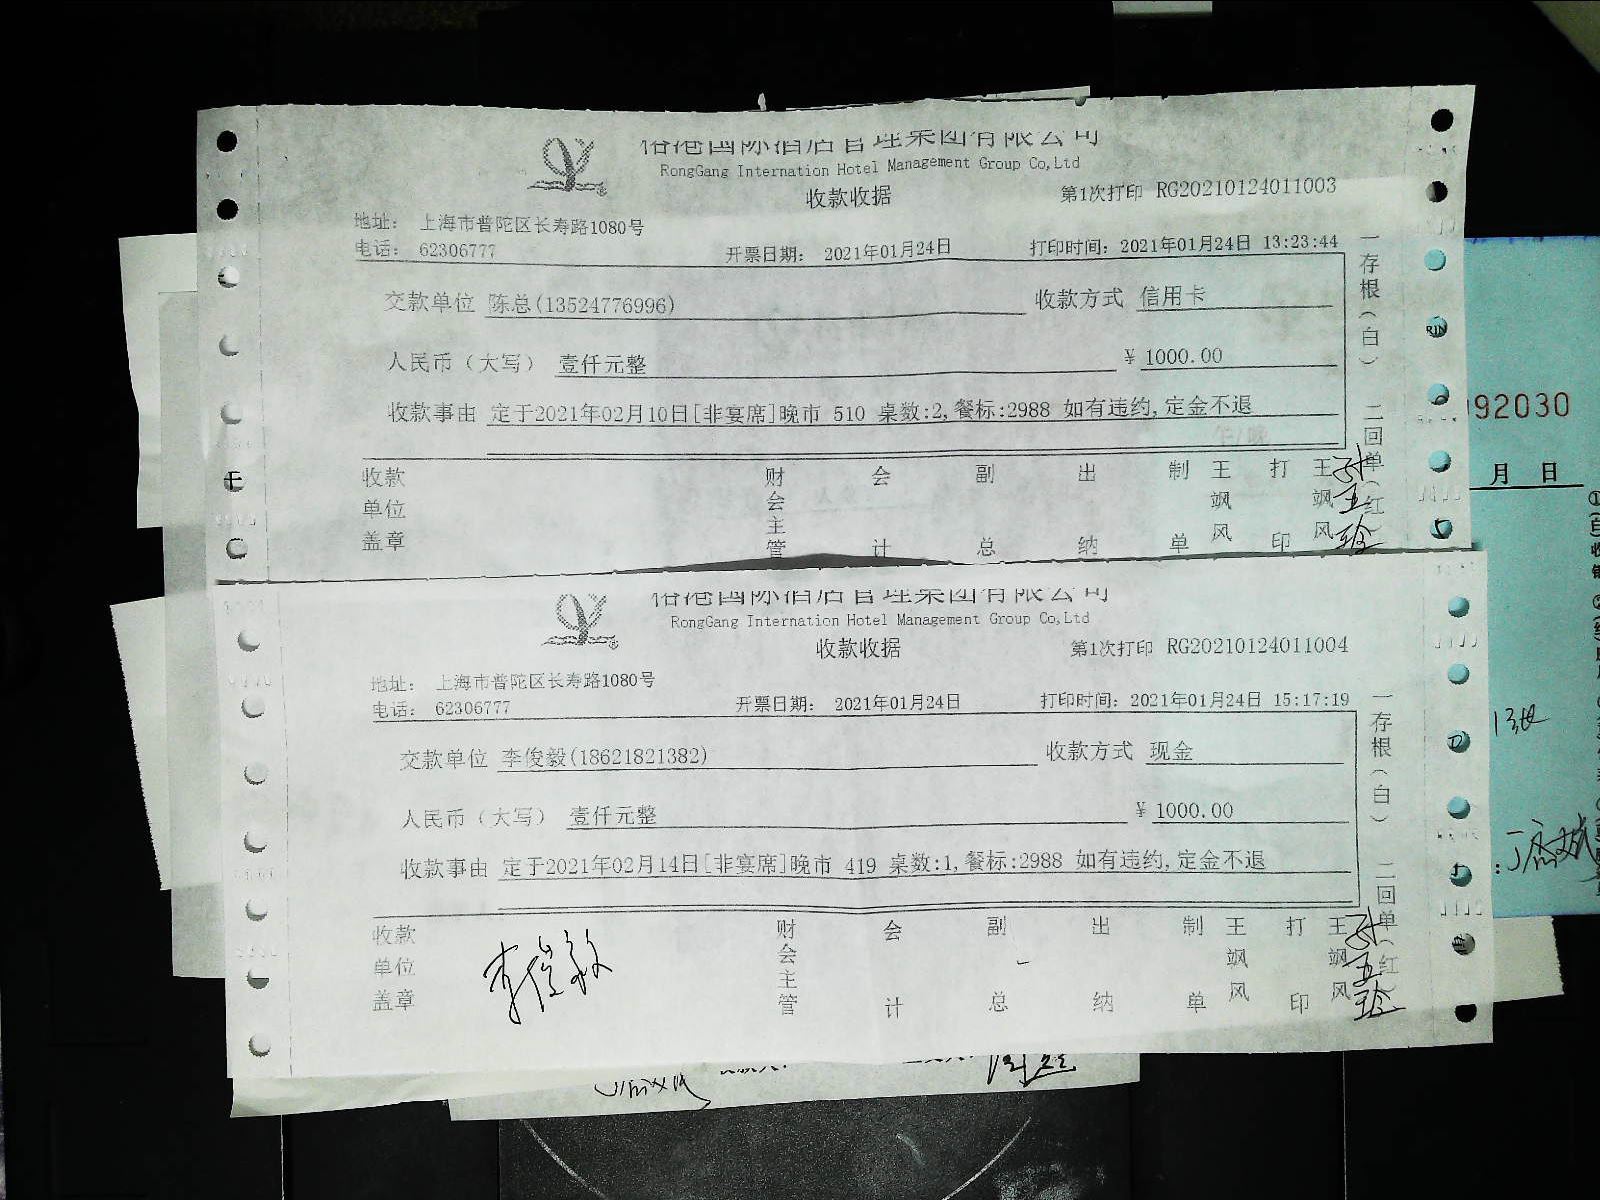 港国际酒店管理集团有限公司
RongGang Internation Hotel Management Group Co,Ltd
收款收据
第1次打印 RG20210124011003
地址： 上海市普陀区长寿路1080号
电话： 62306777
开票日期： 2021年01月24日
打印时间：2021年01月24日 13:23:44
交款单位 陈总(13524776996)
收款方式 信用卡
人民币（大写） 壹仟元整
¥ 1000.00
收款事由 定于2021年02月10日[非宴席]晚市 510 桌数:2,餐标:2988 如有违约,定金不退
收款单位盖章
财会主管
会计
副总
出纳
制单
王飒风
打印
王飒风
一存根（白） 二回单（红）
港国际酒店管理集团有限公司
RongGang Internation Hotel Management Group Co,Ltd
收款收据
第1次打印 RG20210124011004
地址： 上海市普陀区长寿路1080号
电话： 62306777
开票日期： 2021年01月24日
打印时间：2021年01月24日 15:17:19
交款单位 李俊毅(18621821382)
收款方式 现金
人民币（大写） 壹仟元整
¥ 1000.00
收款事由 定于2021年02月14日[非宴席]晚市 419 桌数:1,餐标:2988 如有违约,定金不退
收款单位盖章
李俊毅
财会主管
会计
副总
出纳
制单
王飒风
打印
王飒风
一存根（白） 二回单（红）
92030
月 日